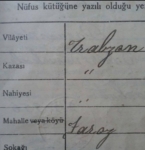 Nüfus kütüğüne yazılı olduğu ye
Vilâyeti Trabzon
Kazası "
Nahiyesi "
Mahalle veya köyü Faroz
Sokağı